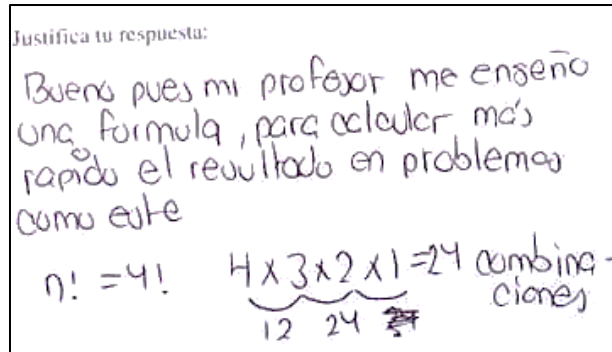 Justifica tu respuesta:
Bueno pues mi profesor me enseño
una formula, para calcular más
rapido el resultado en problemas
como este
n! = 4! 4 x 3 x 2 x 1 = 24 combina-
ciones
12 24